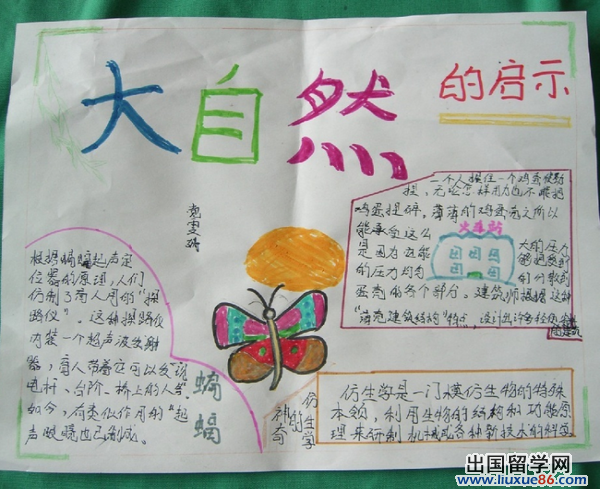 大自然
的启示
一个人握住一个鸡蛋使劲
捏，无论怎样用力也不能把
鸡蛋捏碎。薄薄的鸡蛋壳之所以
能承受这么
大的压力
是因为它能
够把受到
的压力均匀
的分散到
蛋壳的各个部分。建筑师根据这种
“薄壳建筑结构”特点，设计出许多
火车站
根据蝙蝠超声定
位器的原理，人们
仿制了盲人用的“探
路仪”。这种探路仪
内装一个超声波发射
器，盲人带着它可以发现
电杆、台阶、桥上的人等。
如今，有类似作用的“超
声眼镜也已制成。
蝙
蝠
神奇的仿生学
仿生学是一门模仿生物的特殊
本领，利用生物的结构和功能原
理来研制机械或各种新技术的科学
出国留学网
www.liuxue86.com